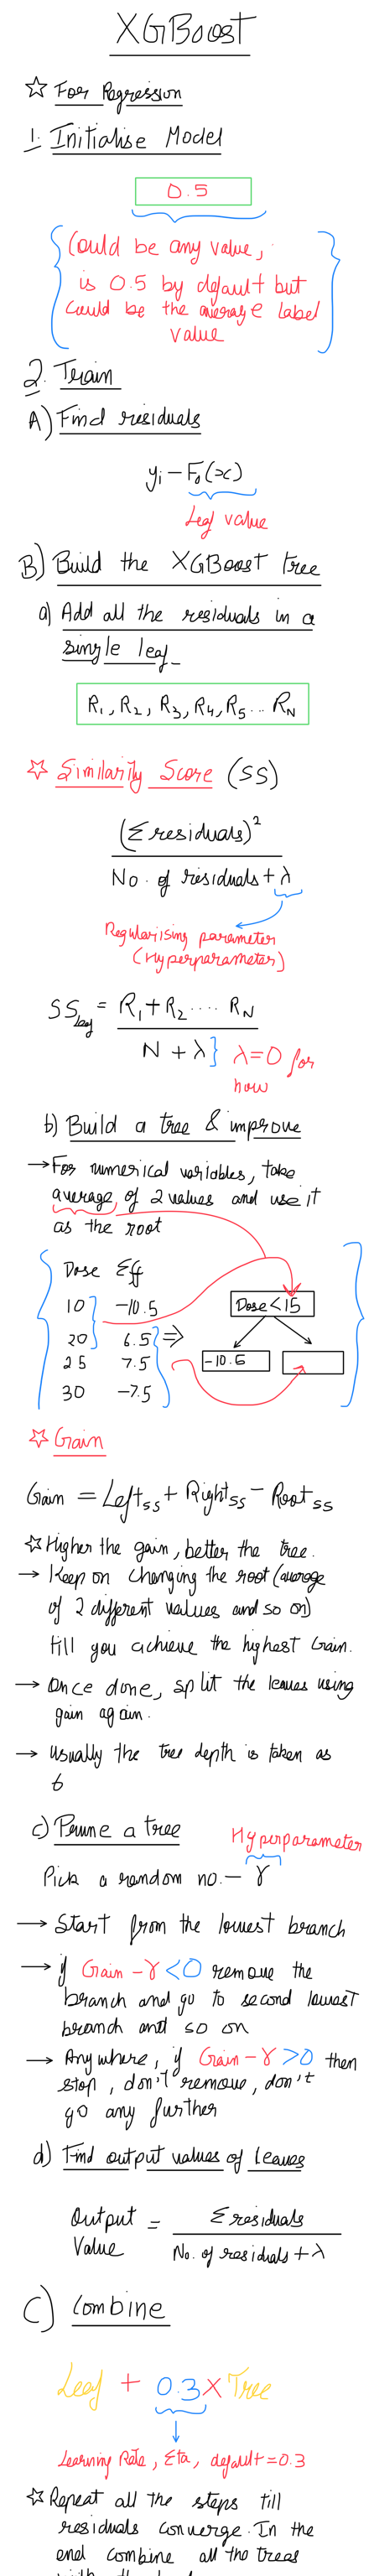 XGBoost
☆ For Regression
1. Initialise Model
0.5
Could be any value,
is 0.5 by default but
could be the average label
value
2. Train
A) Find residuals
yᵢ - F₀(x)
Leaf value
B) Build the XGBoost tree
a) Add all the residuals in a
single leaf
R₁, R₂, R₃, R₄, R₅ ... R_N
☆ Similarity Score (SS)
(Σ residuals)²
No. of residuals + λ
Regularising parameter
(Hyperparameter)
SS_leaf = R₁ + R₂ .... R_N
N + λ } λ = 0 for
now
b) Build a tree & improve
→ For numerical variables, take
average of 2 values and use it
as the root
Dose Eff
10 -10.5
20 6.5 ⇒
25 7.5
30 -7.5
Dose < 15
-10.5
☆ Gain
Gain = Left_SS + Right_SS - Root_SS
☆ Higher the gain, better the tree.
→ Keep on changing the root (average
of 2 different values and so on)
till you achieve the highest Gain.
→ Once done, split the leaves using
gain again.
→ Usually the tree depth is taken as
6
c) Prune a tree
Hyperparameter
Pick a random no. - γ
→ Start from the lowest branch
→ if Gain - γ < 0 remove the
branch and go to second lowest
branch and so on
→ Anywhere, if Gain - γ > 0 then
stop, don't remove, don't
go any further
d) Find output values of leaves
Output Value = Σ residuals
No. of residuals + λ
C) Combine
Leaf + 0.3 x Tree
Learning Rate, Eta, default = 0.3
☆ Repeat all the steps till
residuals converge. In the
end combine all the trees